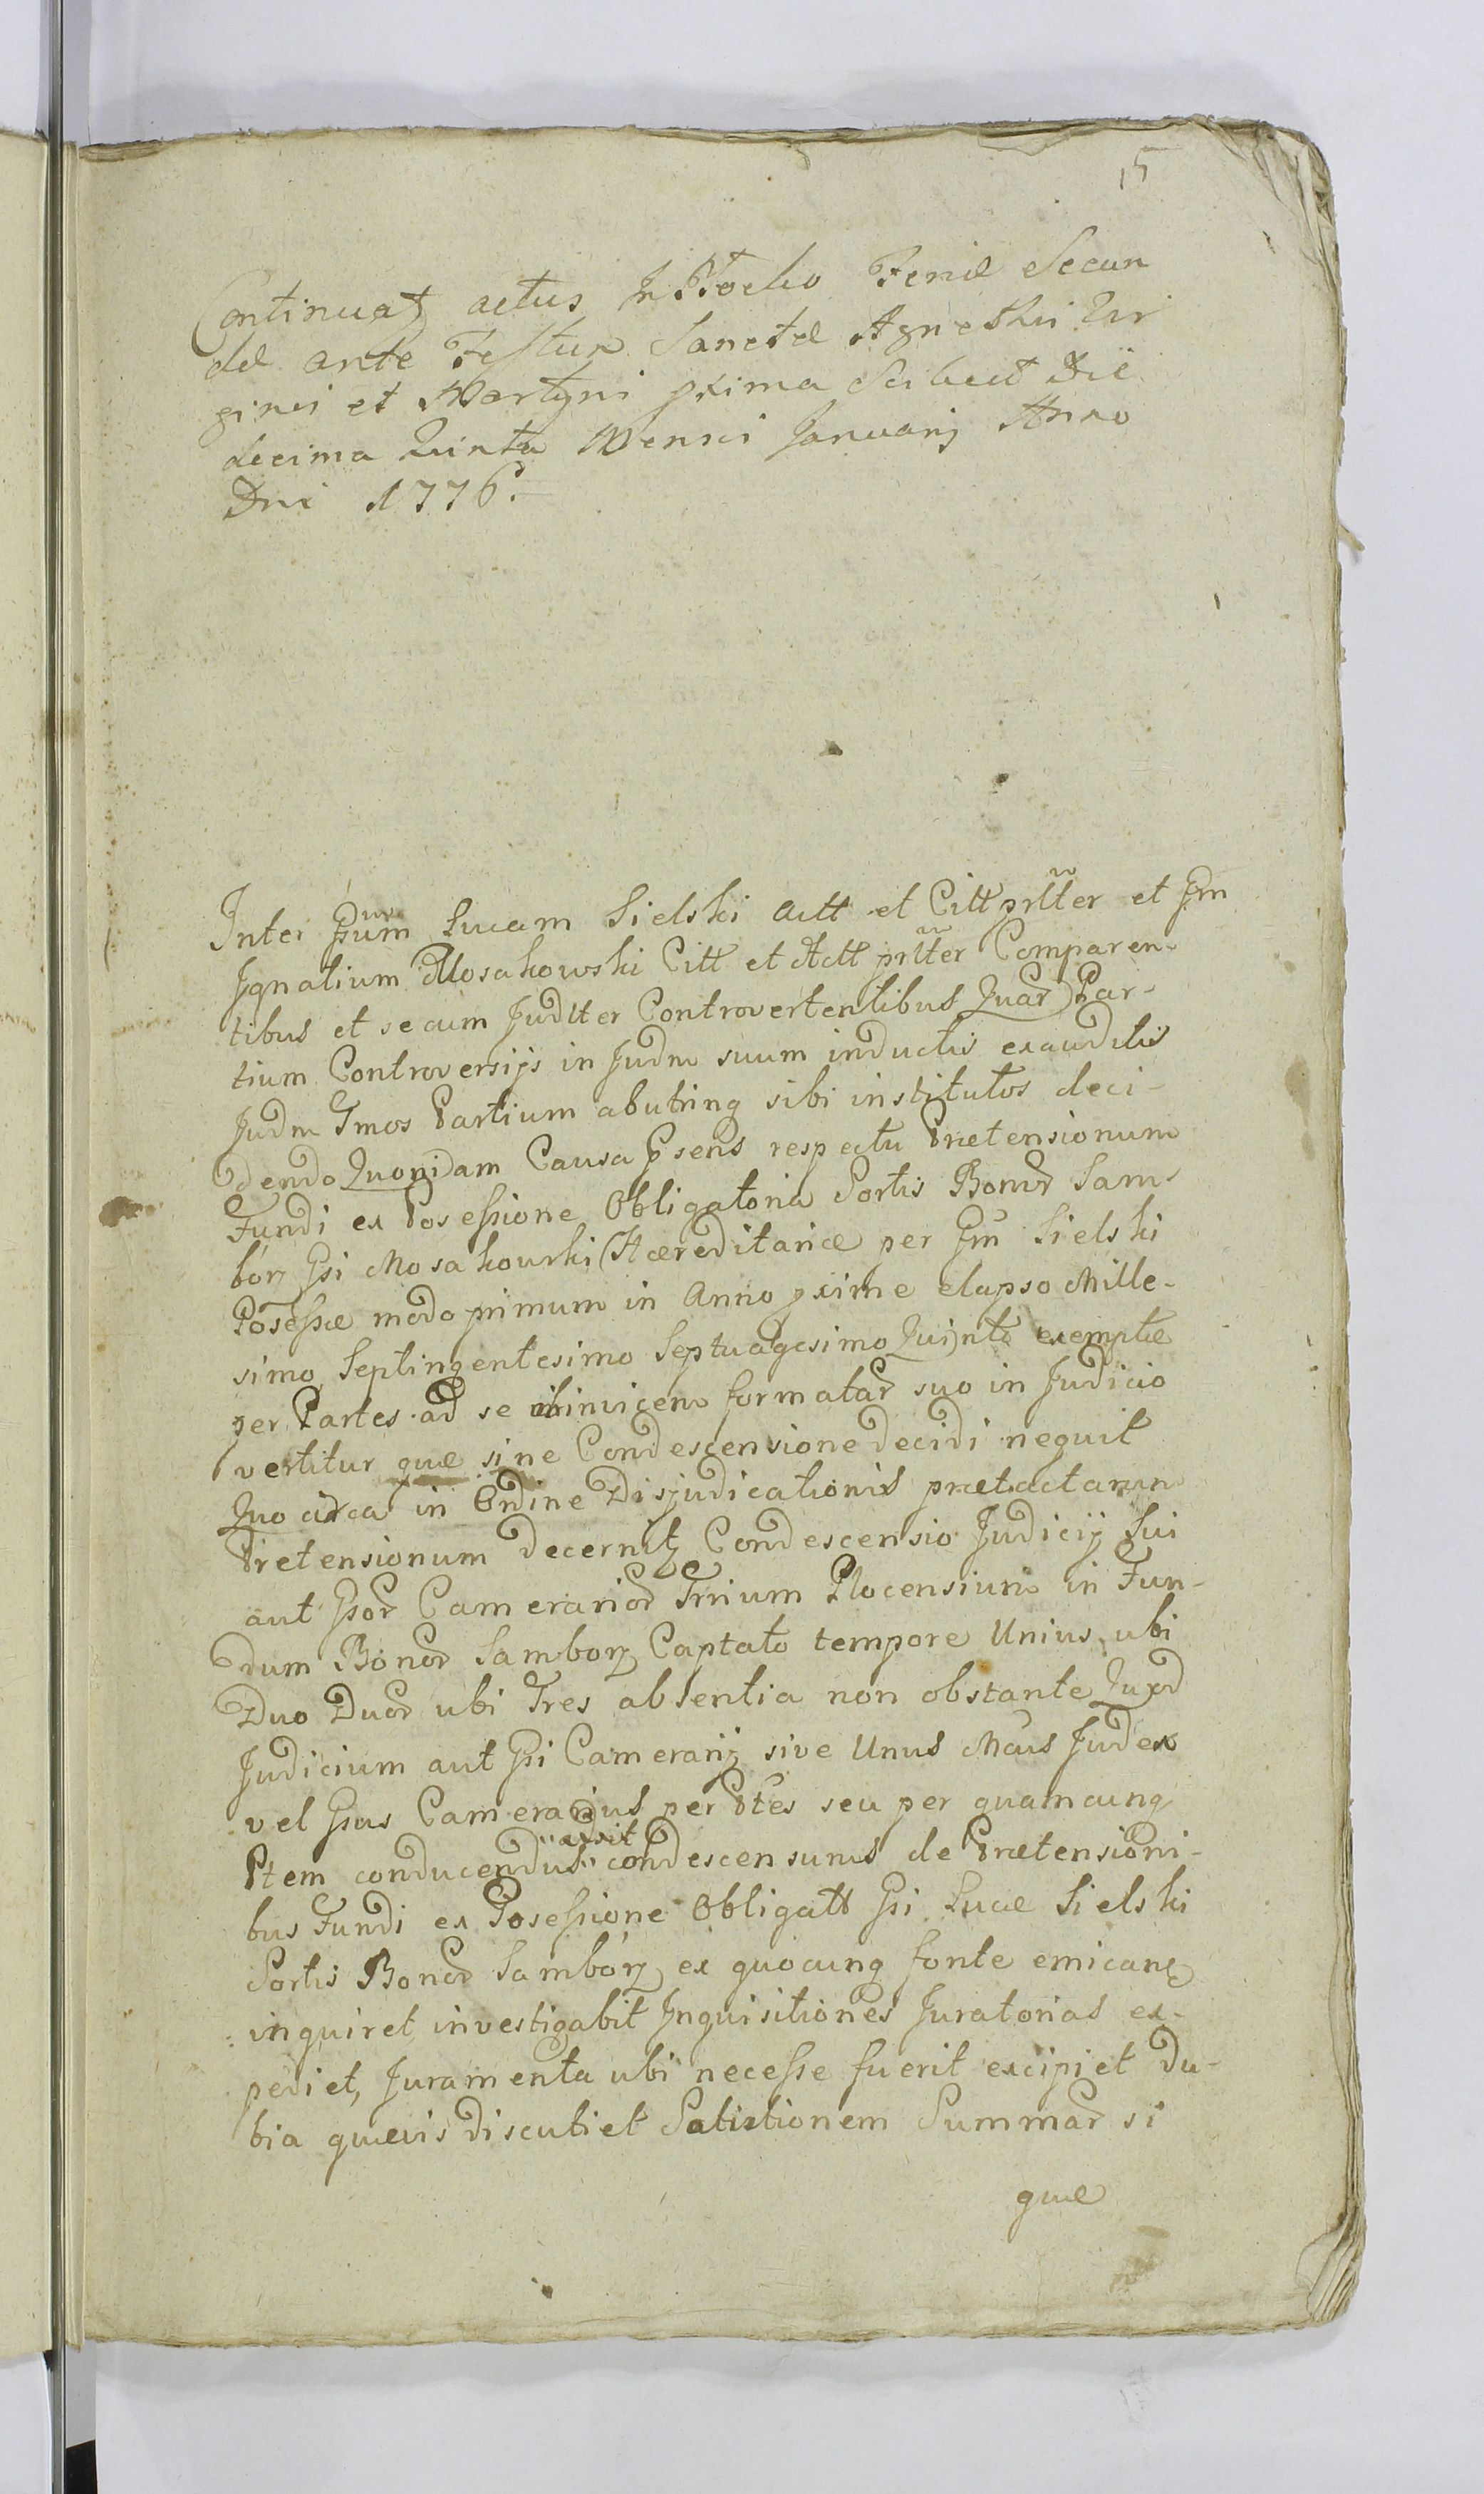 15
Continuat actus in Płocko Feriæ Secun
dæ ante Festum Sanctæ Agnethis Vir
ginis et Martyris proxima Scilicet Die
decima Quinta Mensis Januarij Anno
Dni 1776.
Inter Gsum Lucam Sielski Actt et Citt prltter et Gsm
Ignatium Mosakowski Citt et Actt prltter Comparen-
tibus et secum Judlter Controvertentibus Quar Par-
tium Controversijs in Judm suum inductis exauditis
Judm Tmos Partium abutrinq sibi institutos deci-
dendo Quonidam Causa Psens respectu Prætensionum
Fundi ex Posessione Obligatoria Sortis Bonor Sam-
borz Gsi Mosakowski Hæreditariæ per Gsm Sielski
Posessæ modo primum in Anno pxime elapso Mille-
simo Septingentesimo Septuagesimo Quinto exemptæ
per Partes ad se invicem formatar suo in Judicio
vertitur quæ sine Condescensione decidi nequit
Quo circa in Ordine Disjudicationis prætactarum
Prætensionum decernitz Condescensio Judicij Sui
aut Gsor Camerarior Trrium Plocensium in Fun-
dum Bonor Samborz Captato tempore Unius ubi
Duo Duor ubi Tres absentia non obstante Quod
Judicium aut Gsi Camerarij sive Unus Mcus Judex
vel Gsus Camerarius per Ptes seu per quamcunq
Ptem conducendus adsit condescensurus de Prætensioni-
bus Fundi ex Posessione Obligatt Gsi Lucæ Sielski
Sortis Bonor Samborz ex quocunq fonte emicant
inquiret investigabit Inquisitiones Juratorias ex-
pediet, Juramenta ubi necesse fuerit excipiet Du-
bia quævis discutiet Satistionem Summar si
quæ